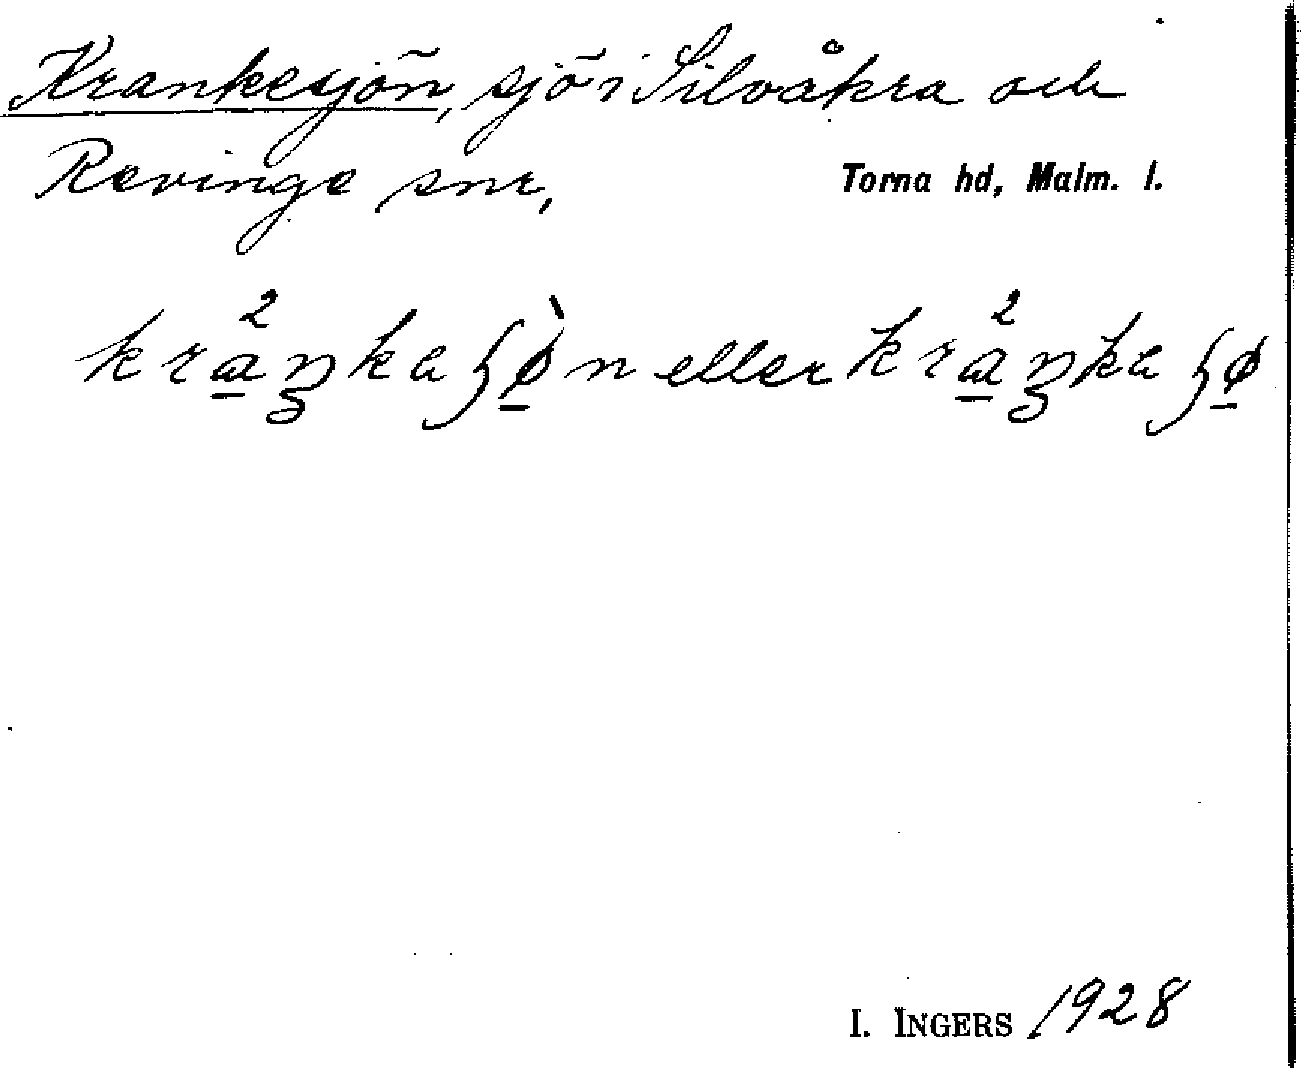 Krankesjön, sjö i Silvåkra och
Revinge snr,
Torna hd, Malm. l.
kra²ŋkaʃø̀n eller kra²ŋkaʃø
I. INGERS 1928